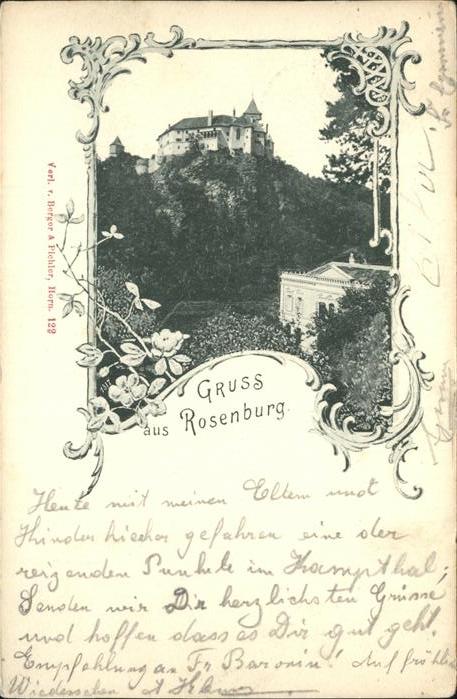 Verl. v. Berger & Pichler, Horn. 122
GRUSS
aus Rosenburg.
Heute mit meinen Eltern und
Kinder hierher gefahren eine der
reizenden Punkte im Kampthal;
Senden wir Dir herzlichsten Grüsse
und hoffen dass es Dir gut geht.
Empfehlung an Fr Baronin! Auf fröhli
Wiedersehen